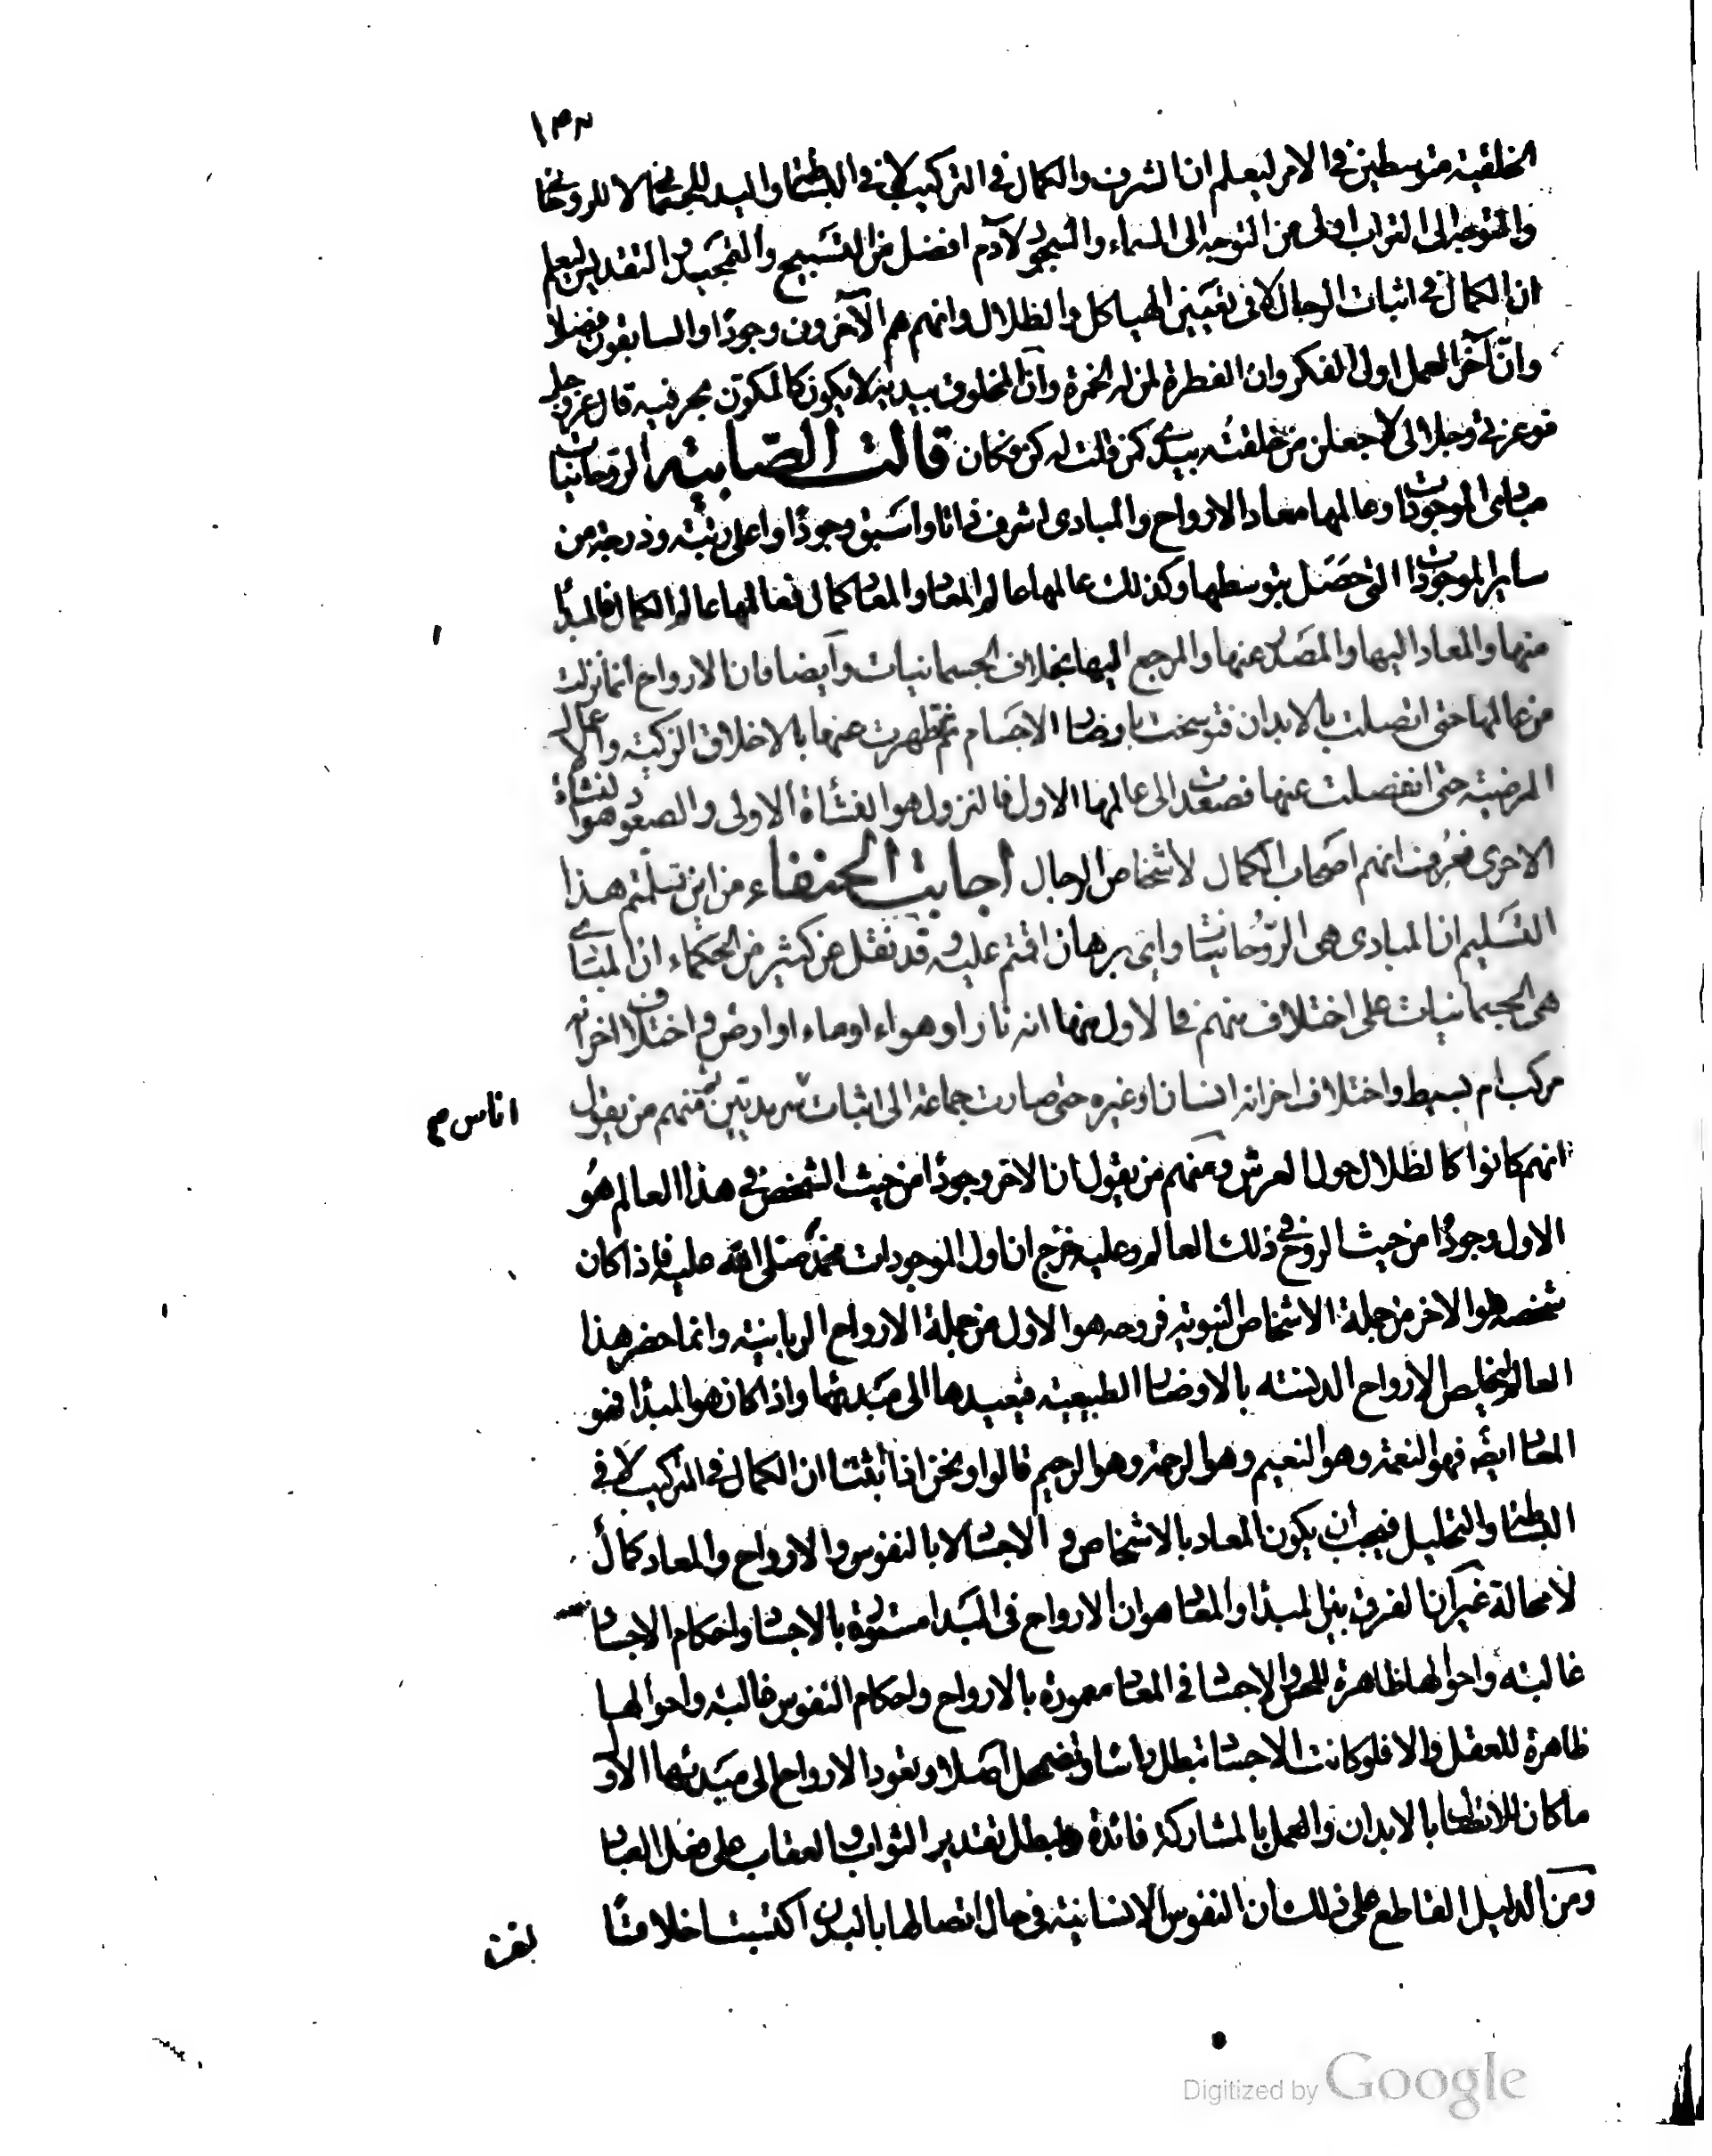 ١٣٢
الخلقية متوسطين فى الامر ليعلم ان الشرف والكمال فى التركيب لا فى البساطة واليد للجسمانى لا للروحانى
والتوجه الى التراب اولى من التوجه الى السماء والسجود لآدم افضل من التسبيح والتمجيد والتقديس ليعلم
ان الكمال فى اثبات الرجال لا فى تعيين الهياكل والظلال وانهم هم الآخرون وجودًا والسابقون فضلا
وانّ آخر العمل اول الفكر وان الفطرة لمن له الخمرة وان المخلوق بيديه لا يكون كالمكوّن بحرفيه قال عز وجل
فوعزتى وجلالى لا اجعلن من خلقتُه بيدى كمن قلت له كن فكان قالت الصّابيه الروحانيات
مبادى الموجودات وعالمها معاد الارواح والمبادى اشرف ذاتا واسبق وجودًا واعلى رتبة ودرجة من
ساير الموجودات التى حصل بتوسطها وكذلك عالمها عالم المعاد والمعاد كمال فعالمها عالم الكمال فالمبدأ
منها والمعاد اليها والمصدر عنها والمرجع اليها بخلاف الجسمانيات وايضا فان الارواح انما نزلت
من عالمها حتى اتصلت بالابدان فتوسخت باوضار الاجسام ثم تطهرت عنها بالاخلاق الزكية والاعمال
المرضية حتى انفصلت عنها فصعدت الى عالمها الاول فالنزول هو النشأة الاولى والصعود هو النشأة
الاخرى فعُرف انهم اصحاب الكمال لا اشخاص الرجال اجابت الحنفاء من اين تسلمتم هذا
التسليم ان المبادى هى الروحانيات واى برهان اقمتم عليه وقد نقل عن كثير من الحكماء ان المبادى
هى الجسمانيات على اختلاف منهم فى الاول منها انه نار او هواء او ماء او ارض واختلاف اخر انه
مركب ام بسيط واختلاف اخر انه انسان او غيره حتى صارت جماعة الى اثبات سرمديين ثم منهم من يقول
اناس صح
انهم كانوا كالظلال حول العرش ومنهم من يقول ان الاخر وجودًا من حيث الشخص فى هذا العالم هُو
الاول وجودًا من حيث الروح فى ذلك العالم وعليه خرج ان اول الموجودات محمد صلى الله عليه فاذا كان
شخصه هو الاخر من جملة الاشخاص النبوية فروحه هو الاول من جملة الارواح الربانية وانما حضر هذا
العالم ليخلص الارواح الدنسه بالاوضار الطبيعيه فيعيدها الى مبدئها واذا كان هو المبدأ فهو
المعاد ايضًا فهو النعمة وهو النعيم وهو الرحمة وهو الرحيم قالوا ونحن اذا اثبتنا ان الكمال فى التركيب لا فى
البساطة والتحليل فيجب ان يكون المعاد بالاشخاص والاجساد لا بالنفوس والارواح والمعاد كمال
لا محالة غير ان الفرق بين المبدا والمعاد هو ان الارواح فى المبدا مستورة بالاجساد واحكام الاجساد
غالبة واحوالها ظاهرة للحس والاجساد فى المعاد مغمورة بالارواح واحكام النفوس غالبة واحوالها
ظاهرة للعقل والا فلو كانت الاجساد تبطل راسًا وتضمحل اصلا وتعود الارواح الى مبدئها الاول
ما كان للاتصال بالابدان والعمل بالمشاركة فائدة ولبطل تقدير الثواب والعقاب على فعل العباد
ومن الدليل القاطع على ذلك ان النفوس الانسانية فى حال اتصالها بالبدن اكتسبت اخلاقًا
Digitized by Google